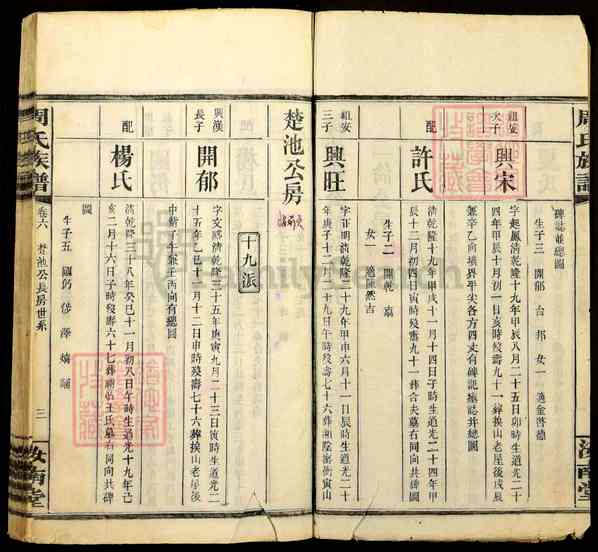 周氏族譜
汝南堂
碑誌並總圖
生子三 開郁 台 邦 女一 適金啓德
祖安次子
興宋
字起鳳清乾隆十九年甲辰八月二十五日卯時生道光二十
四年甲辰十月初一日亥時殁壽九十一葬挨山老屋後戌辰
兼辛乙向墳界平尖各方四丈有碑記墳誌并總圖
配
許氏
清乾隆十九年甲戌十一月十四日子時生道光二十四年甲
辰十二月初四日寅時殁壽九十一葬合夫墓右同向共碑
生子二 開乾 嘉
女一 適陳然吉
祖安三子
興旺
字正明清乾隆二十九年甲申六月十一日辰時生道光二十
年庚子十二月二十九日午時殁壽七十六葬
楚池公房
十九派
興漢長子
開郁
字文清乾隆三十五年庚寅九月二十三日寅時生道光二
十五年乙巳十月十二日申時殁壽七十六葬挨山老屋後
向有總圖
配
楊氏
清乾隆三十八年癸巳十一月初八日午時生道光十九年己
亥二月十六日子時殁壽六十七葬王氏墓右同向共碑
圖
生子五
周氏族譜
卷六 楚池公長房世系
三
汝南堂
FamilySearch